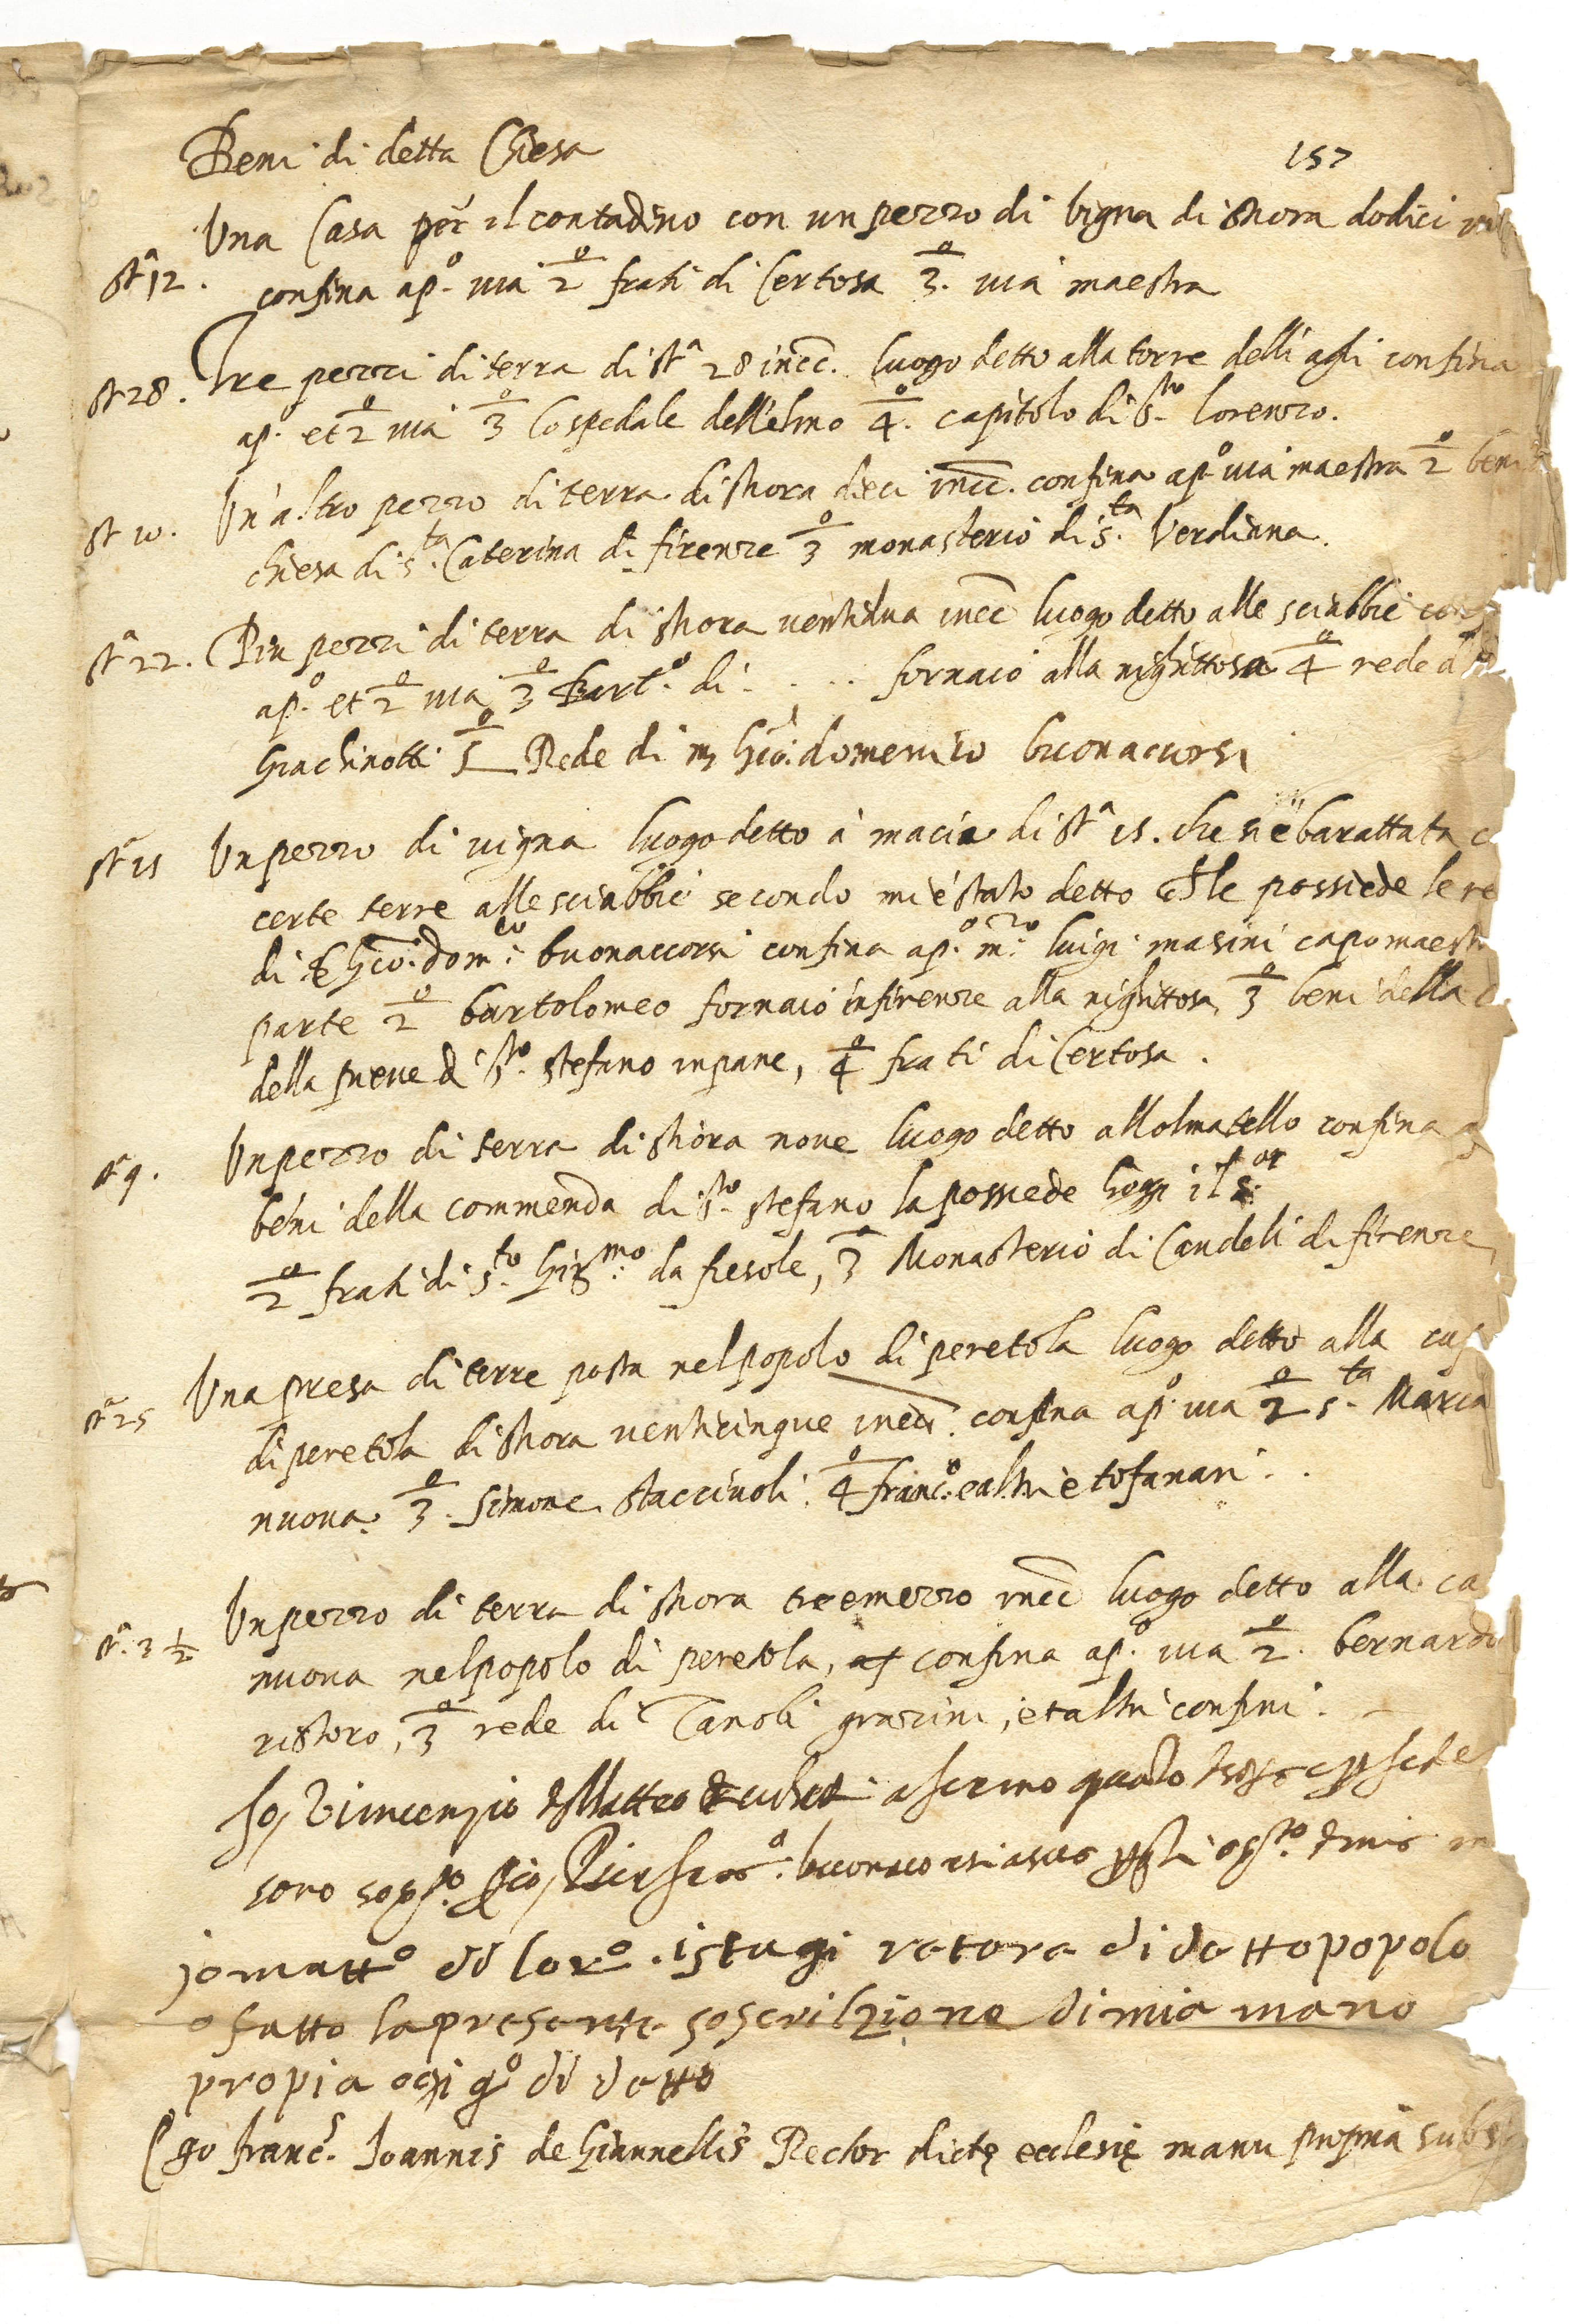 Beni di detta Chiesa
157
Una Casa per il contadino con un pezzo di vigna di stiora dodici
stª 12. confina a pº via 2º frati di Certosa 3º via maestra
st 28. Tre pezzi di terra di stª 28 incc. luogo detto alla torre delli agli confina
a pº et 2º via 3º lo spedale dell'elmo 4º capitolo di sto lorenzo.
st 10. Un'altro pezzo di terra di stiora dieci incc. confina a pº via maestra 2º beni
chiesa di sta Caterina di firenze 3º monasterio di sta Verdiana.
stª 22. Piu pezzi di terra di stiora ventidua incc luogo detto alle sciabbie
a pº et 2º via 3º Bartº di . . . . fornaio alla nighittosa 4º rede
Giachinotti 5º Rede di m Giō: domenico buonaccorsi
stª 15 Un pezzo di vigna luogo detto à macia di stª 15. che si è barattata
certe terre alle sciabbie secondo mi è stato detto le possiede le
di Giō: domco: buonaccorsi confina a pº mro luigi masini capomaestro
parte 2º bartolomeo fornaio in firenze alla nighittosa 3º beni della
della pieve di sto stefano in pane, 4º frati di Certosa.
stª 9. Un pezzo di terra di stiora nove luogo detto all olmatello confina
beni della commenda di sto stefano la possiede hoggi il sor
2º frati di sto Girmo: da fiesole, 3º Monasterio di Candeli di firenze
Una presa di terre posta nel popolo di peretola luogo detto alla
stª 25 di peretola di stiora venticinque incc. confina a pº via 2º sta Maria
nuova. 3º Simone staccinoli. 4º francº: e altri è tofanari . .
Un pezzo di terra di stiora tre e mezzo incc luogo detto alla ca
stª. 3 1/2 nuova nel popolo di peretola, confina a pº via 2º bernardo
ristoro, 3º rede di Zanobi grazini, et altri confini.
Io Vincenzio di Matteo afermo quanto
io mattº di lorº. istugi retore di detto popolo
o fatto la presente soscrilzione di mia mano
propia ogi gº di detto
Ego francs. Joannis de Giannellis Rector dictę ecclesię manu propria subs